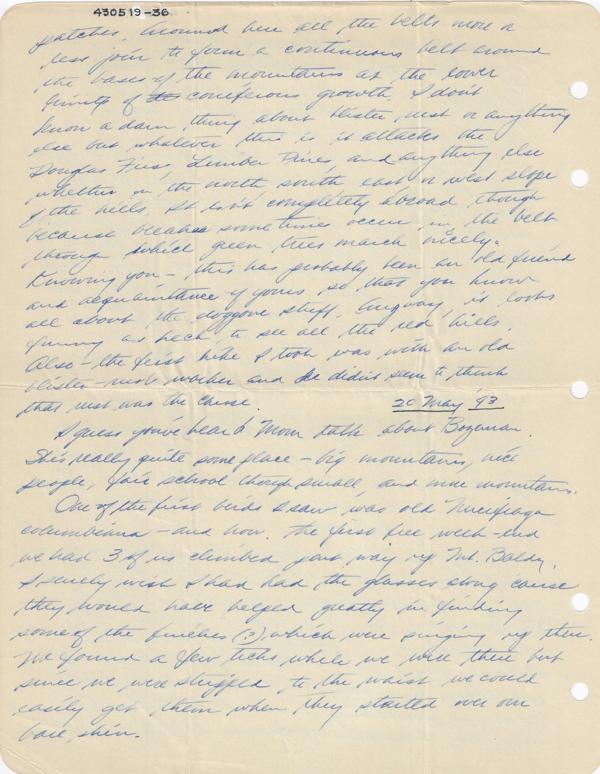 430519-36
patches. Around here all the belts more or
less join to form a continuous belt around
the bases of the mountains at the lower
limits of the coniferous growth. I don't
know a darn thing about blister rust or anything
else but whatever this is it attacks the
Douglas Firs, Limber Pines, and anything else
whether on the north south east or west slope
of the hills. It isn't completely abroad though
because breaks sometimes occur in the belt
through which green trees march nicely.
Knowing you - this has probably been an old friend
and acquaintance of yours, so that you know
all about the doggone stuff. Anyway it looks
funny as heck to see all the red hills.
Also - the first hike I took was with an old
blister-rust worker and he didn't seem to think
that rust was the cause.
20 May '43
I guess you've heard Mom talk about Bozeman.
She's really quite some place - big mountains, nice
people, fair school though small and more mountains.
One of the first birds I saw was old Nucifraga
columbiana - and how. The first free week-end
we had 3 of us climbed part way up Mt. Baldy.
I surely wish I had had the glasses along cause
they would have helped greatly in finding
some of the finches (?) which were singing up there.
We found a few ticks while we were there but
since we were stripped to the waist we could
easily get them when they started over our
bare skin.